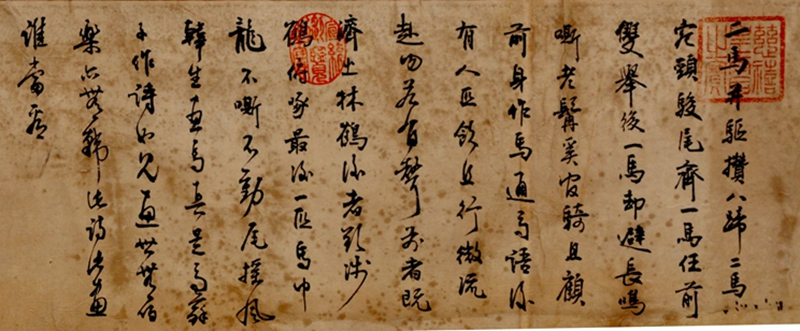 二馬并驅攢八蹄二馬
宛頸騣尾齊一馬任前
雙舉後一馬却避長鳴
嘶老髯奚官騎且顧
前身作馬通馬語後
有八匹飲且行微流
赴吻若有聲前者既
濟出林鶴後者欲涉
鶴俯啄最後一匹馬中
龍不嘶不動尾搖風
韓生畫馬真是馬蘇
子作詩如見畫世無伯
樂亦無韓此詩此畫
誰當看